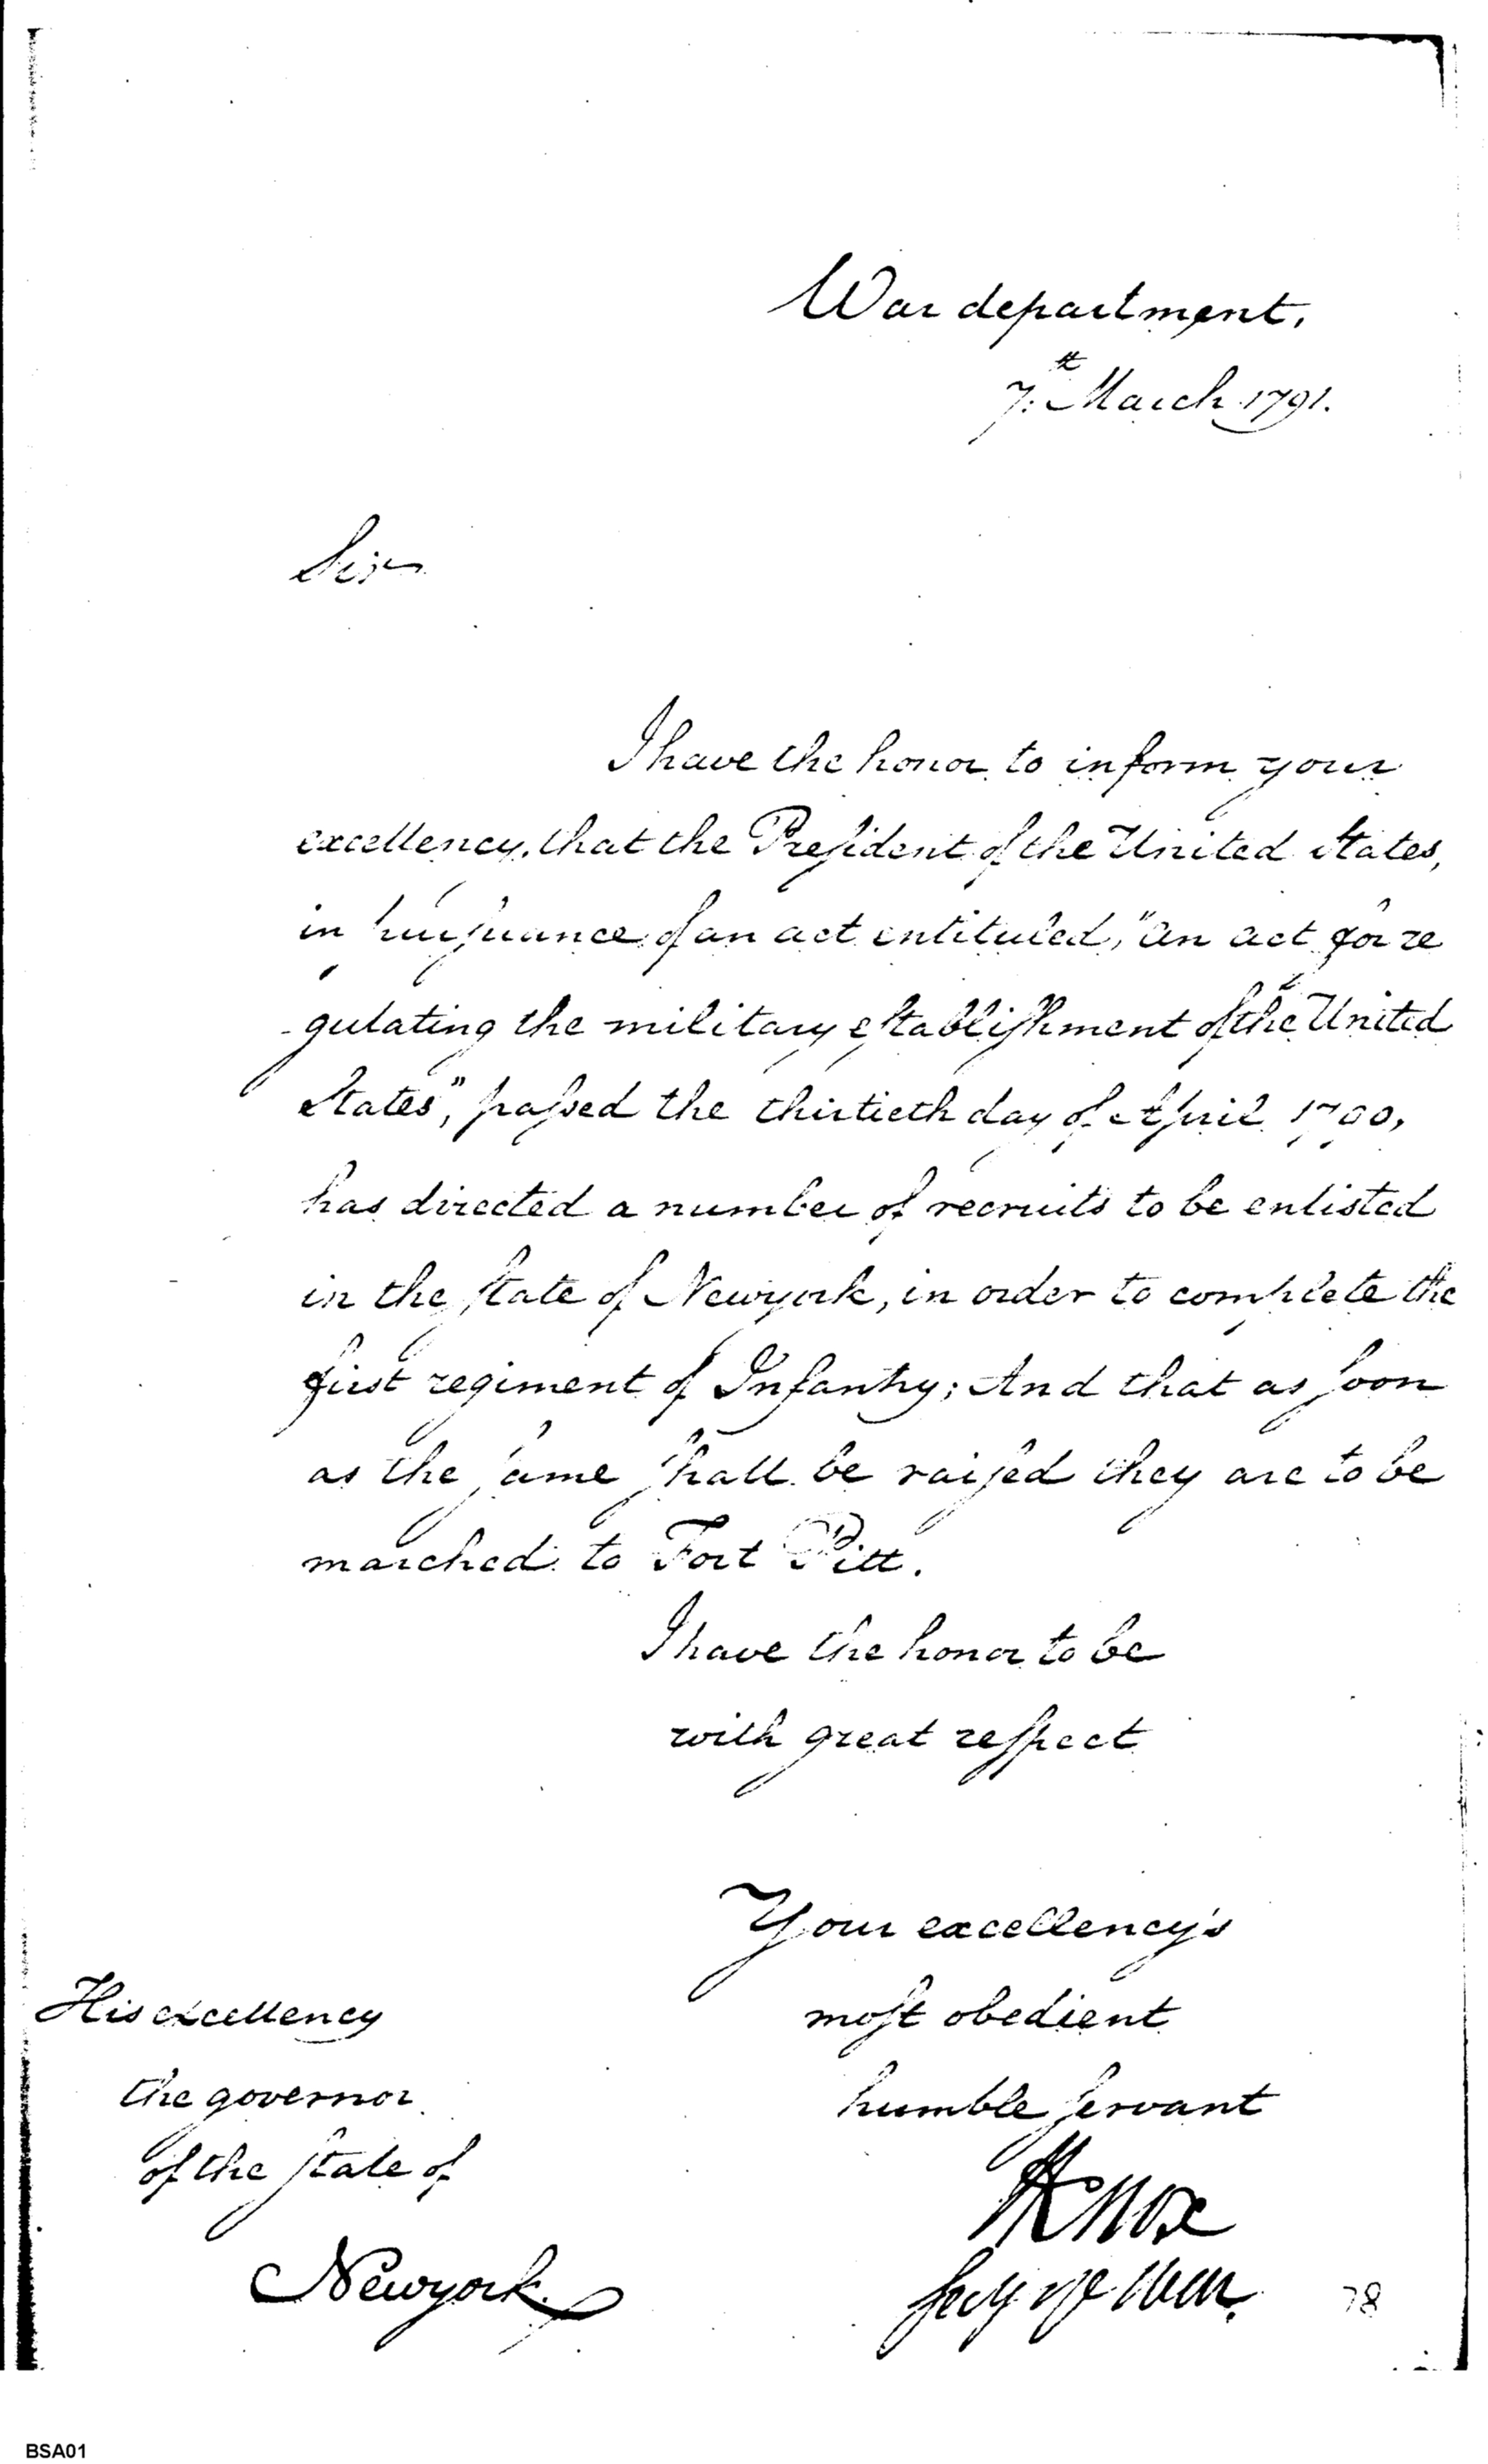 War department,
7th March 1791.
Sir
I have the honor to inform your
excellency, that the President of the United States,
in pursuance of an act entituled, "an act for re
-gulating the military establishment of the United
States", passed the thirtieth day of April 1790,
has directed a number of recruits to be enlisted
in the state of Newyork, in order to complete the
first regiment of Infantry; And that as soon
as the same shall be raised they are to be
marched to Fort Pitt.
I have the honor to be
with great respect
Your excellency's
most obedient
humble servant
HKnox
secy of war
His excellency
the governor
of the state of
Newyork.
78
BSA01